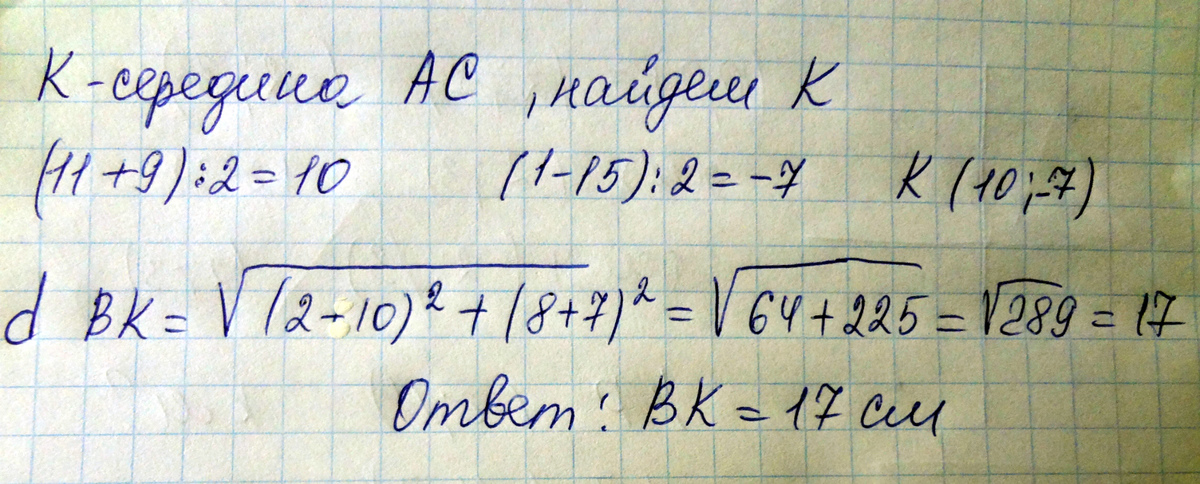 К-середина АС, найдем К
(11+9):2=10 (1-15):2=-7 К (10;-7)
d BK = √(2-10)² + (8+7)² = √64+225 = √289 = 17
Ответ: ВК = 17 см